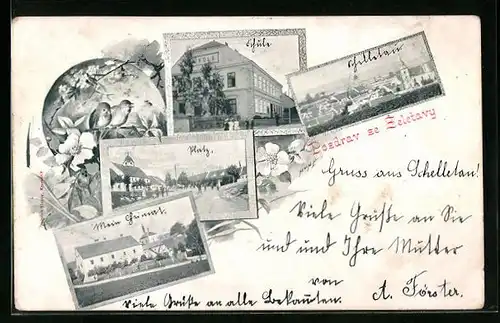 Schule
Schelletau
Pozdrav ze Želetavy
Platz.
Gruss aus Schelletau!
Mein Heimat.
Viele Grüße an Sie
und und Ihre Mutter
von
A. Förster.
Viele Grüße an alle Bekannten.